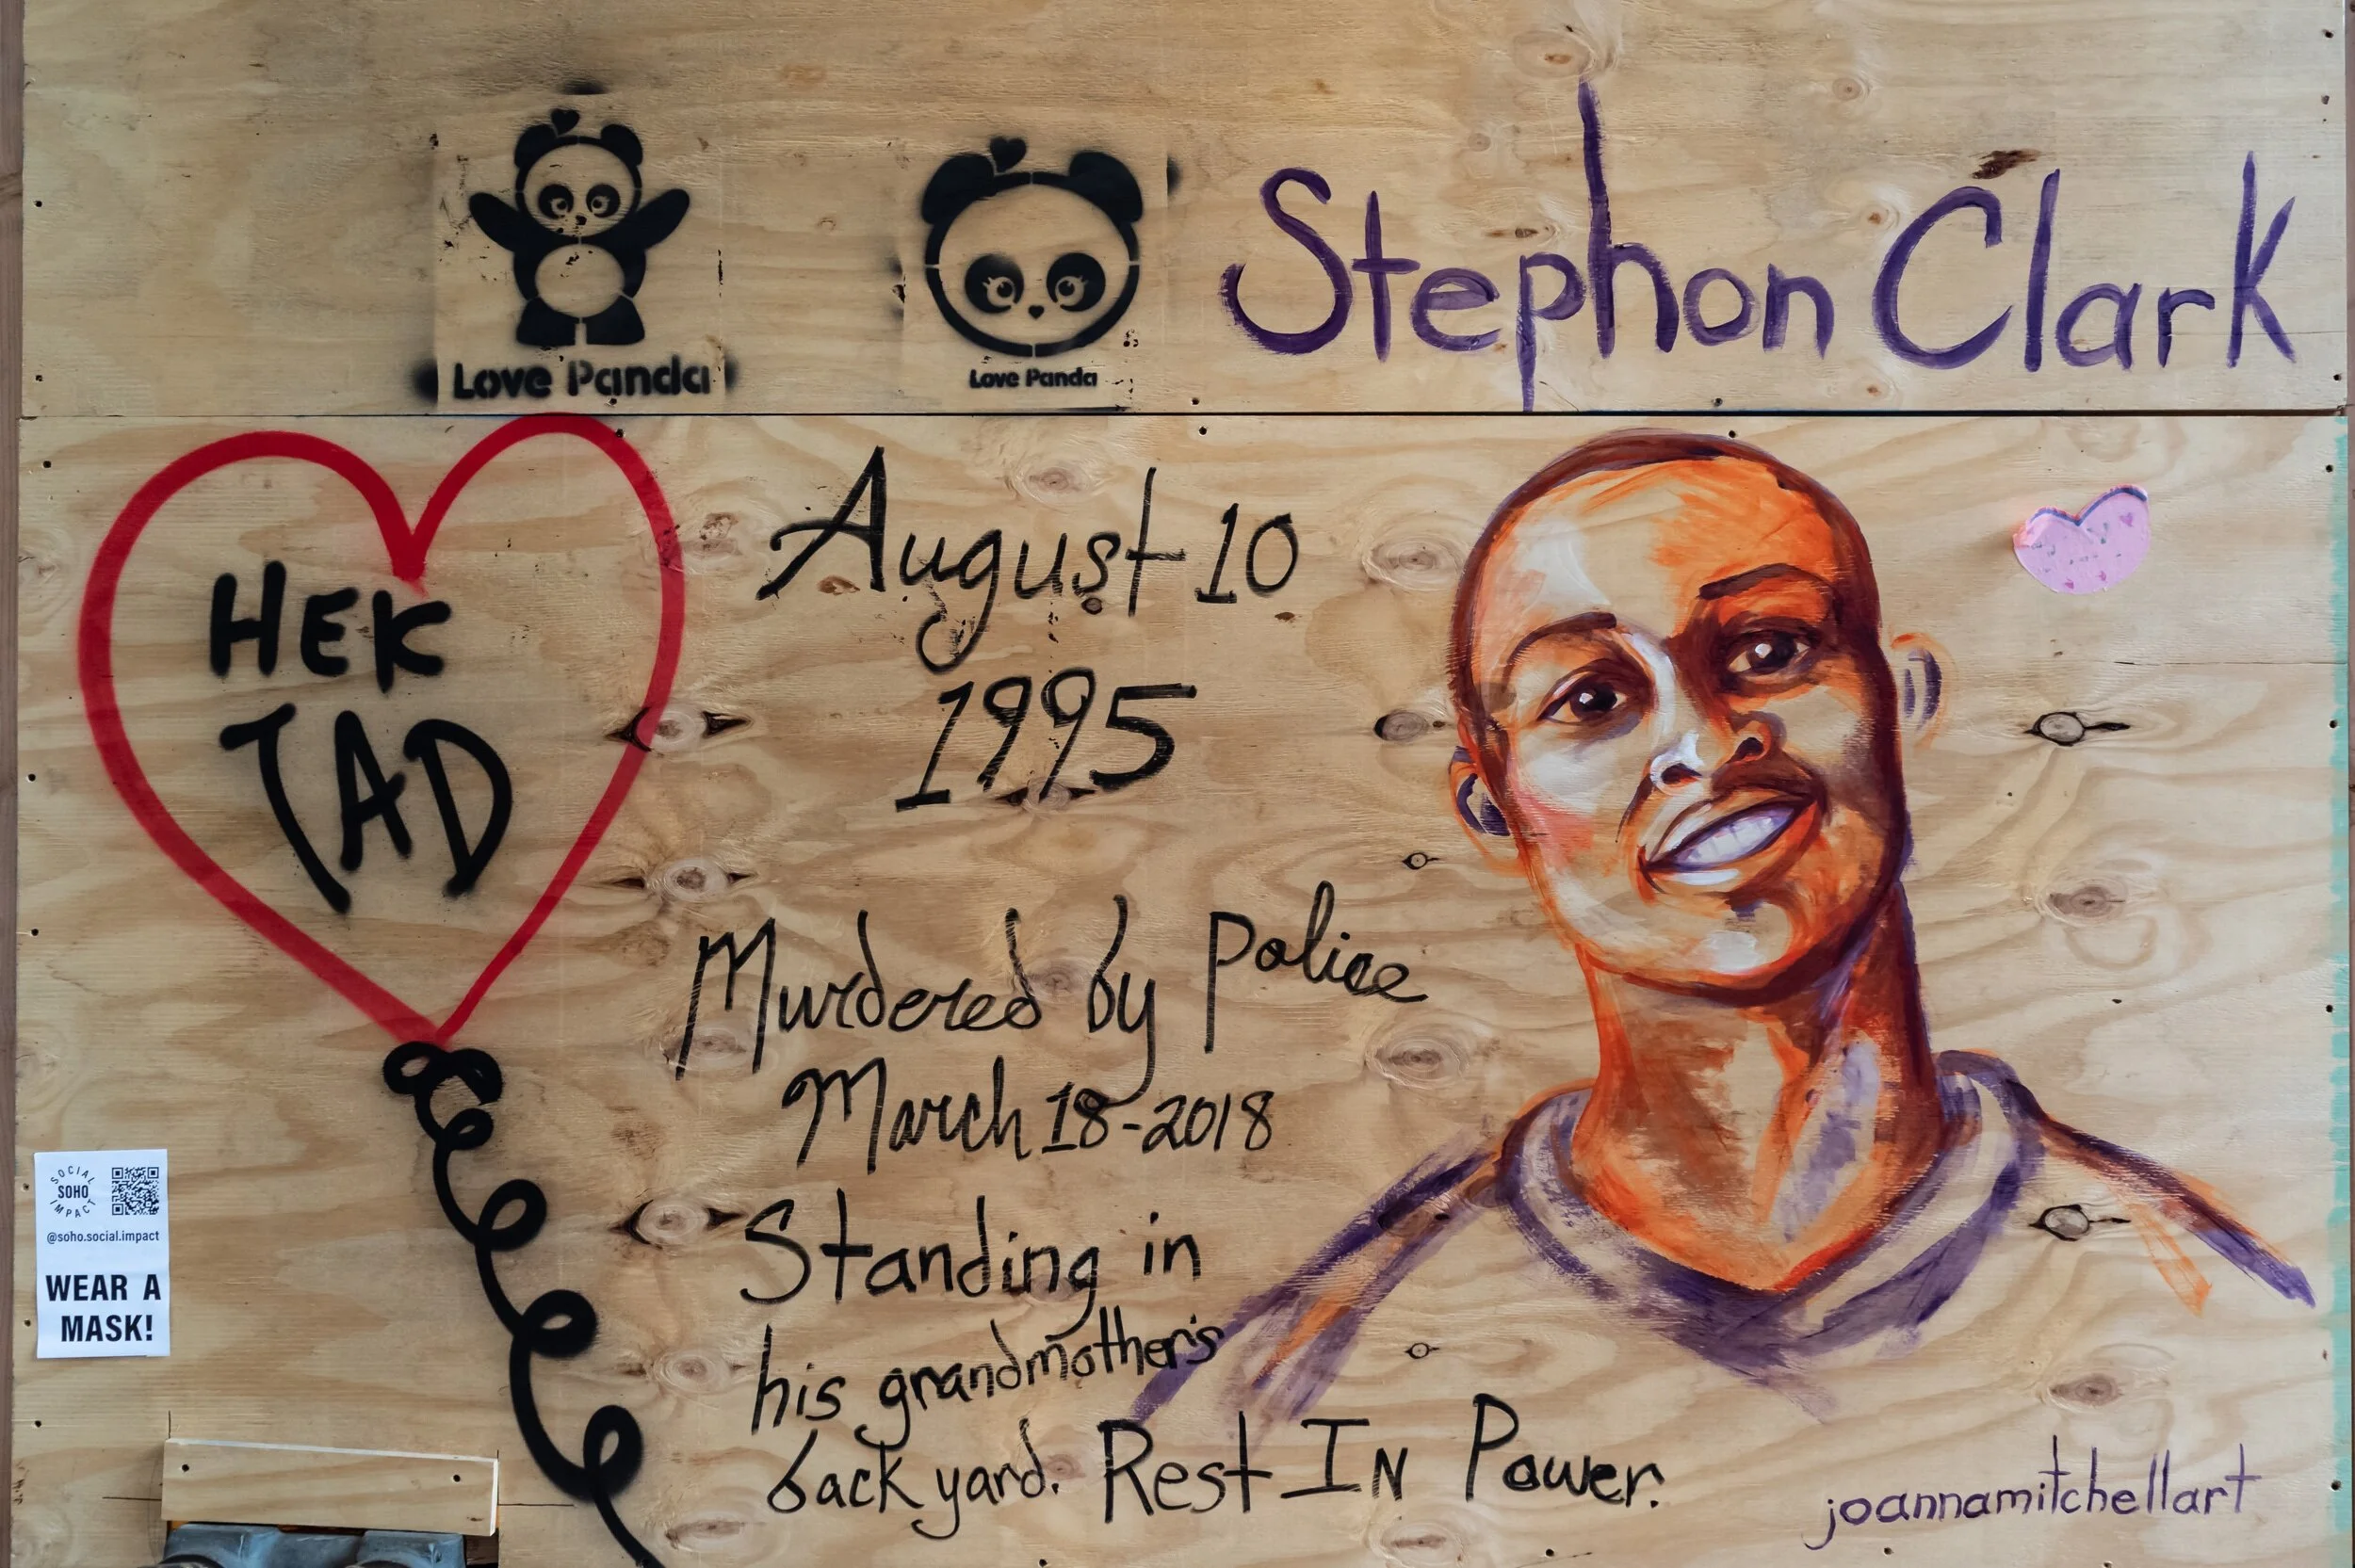 Love Panda
Love Panda
Stephon Clark
HEK
TAD
August 10
1995
Murdered by Police
March 18-2018
Standing in
his grandmother's
back yard. Rest In Power.
SOCIAL
SOHO
IMPACT
@soho.social.impact
WEAR A
MASK!
joannamitchellart